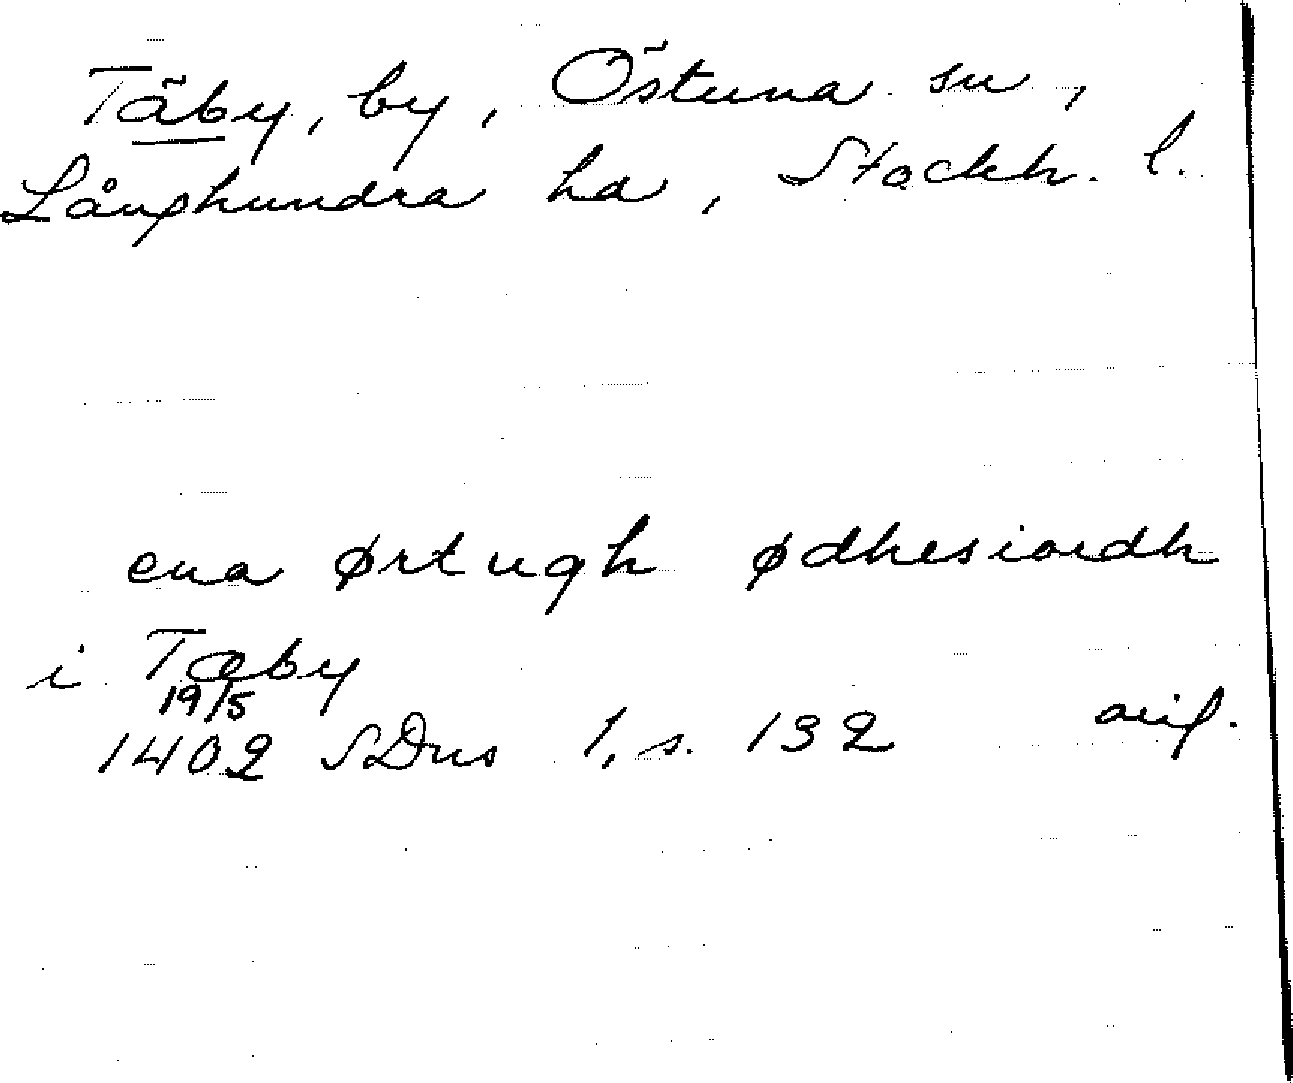 Täby, by, Östuna sn,
Långhundra hd, Stockh. l.
ena ørtugh ødhesiordh
i Tæby
19/5
1402 SDns 1, s. 132 orig.